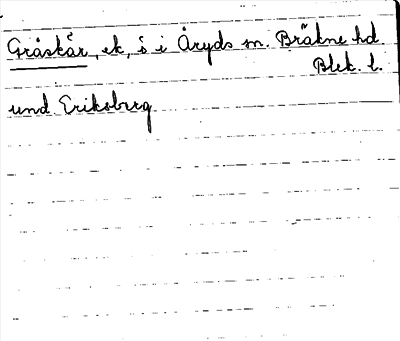 Gråskär, ek, ö i Åryds sn. Bräkne hd.
Blek. l.
und. Eriksberg